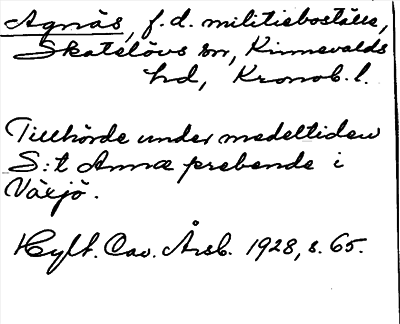 Agnäs, f.d. militieboställe,
Skatelövs sn, Kinnevalds
hd, Kronob. l.
Tillhörde under medeltiden
S:t Annæ prebende i
Växjö.
Hylt. Cav. Årsb. 1928, s. 65.